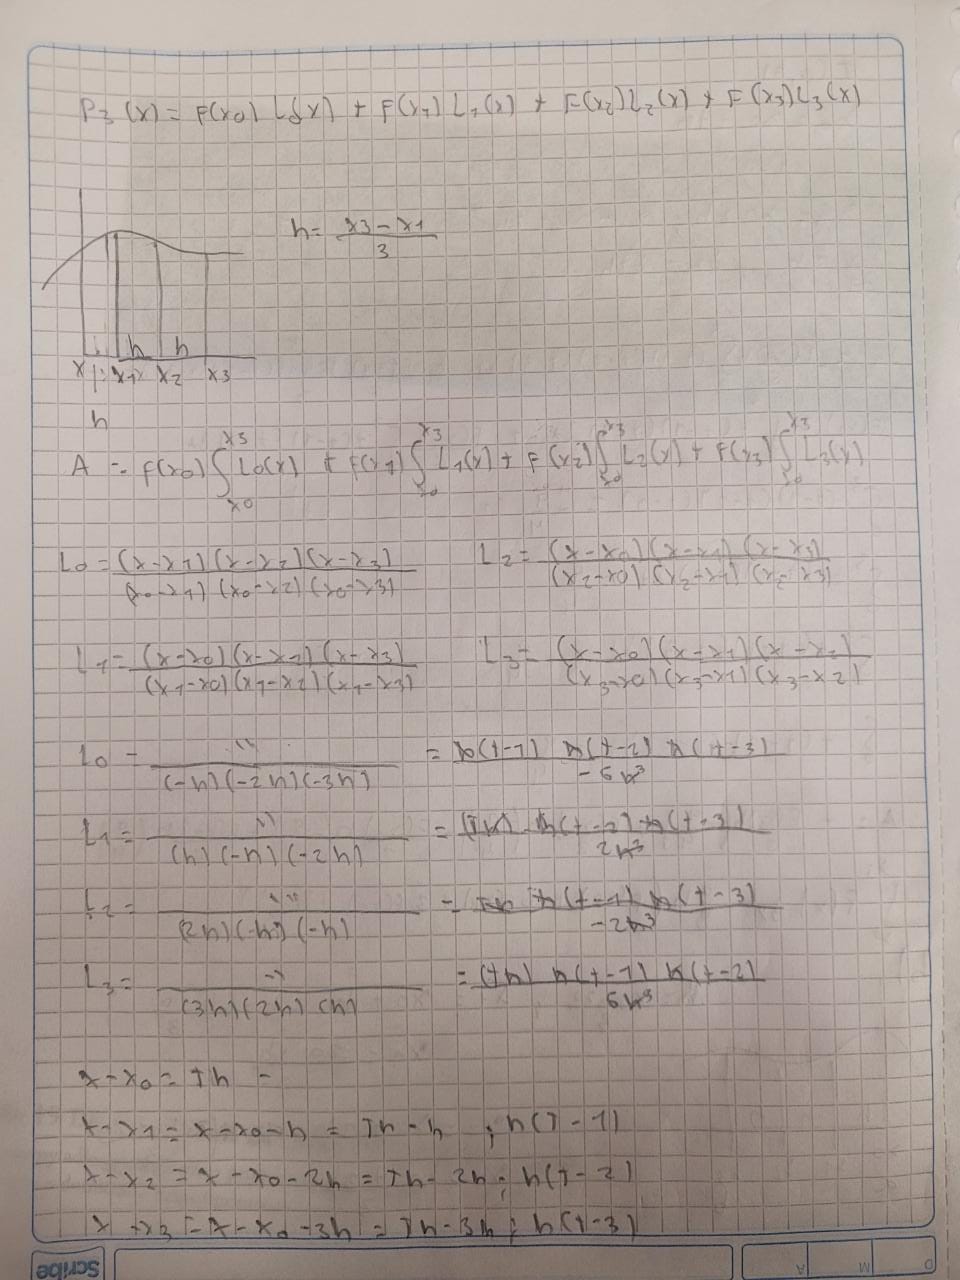 P3 (x) = F(x0) L0(x) + F(x1) L1(x) + F(x2) L2(x) + F(x3) L3(x)
h = x3 - x1 / 3
h h
x1 x2 x3
h
A = F(x0) ∫x0^x3 L0(x) + F(x1) ∫x0^x3 L1(x) + F(x2) ∫x0^x3 L2(x) + F(x3) ∫x0^x3 L3(x)
L0 = (x-x1)(x-x2)(x-x3) / (x0-x1)(x0-x2)(x0-x3) L2 = (x-x0)(x-x1)(x-x3) / (x2-x0)(x2-x1)(x2-x3)
L1 = (x-x0)(x-x2)(x-x3) / (x1-x0)(x1-x2)(x1-x3) L3 = (x-x0)(x-x1)(x-x2) / (x3-x0)(x3-x1)(x3-x2)
L0 = '' / (-h)(-2h)(-3h) = h(t-1) h(t-2) h(t-3) / -6h³
L1 = '' / (h)(-h)(-2h) = (Th) h(t-2) h(t-3) / 2h³
L2 = '' / (2h)(-h)(-h) = Th h(t-1) h(t-3) / -2h³
L3 = '' / (3h)(2h)(h) = (th) h(t-1) h(t-2) / 6h³
x-x0 = Th -
x-x1 = x-x0-h = Th-h ; h(T-1)
x-x2 = x-x0-2h = Th-2h ; h(T-2)
x-x3 = x-x0-3h = Th-3h ; h(t-3)
Scribe
A M D